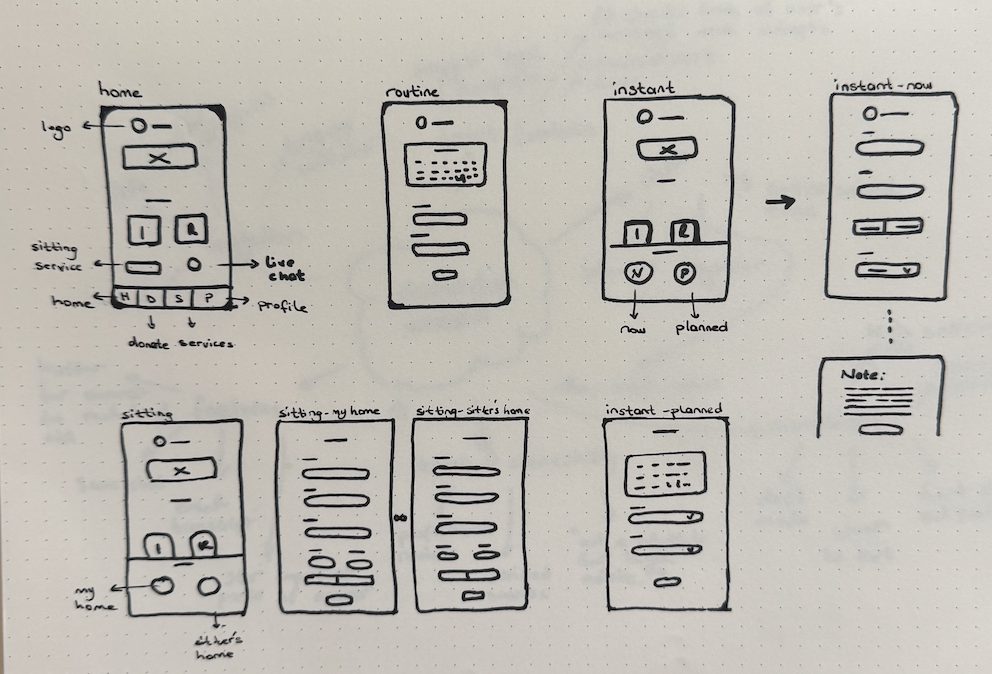 home
logo
I R
sitting
service
live
chat
home
H D S P
profile
donate services
routine
instant
I R
N P
now planned
instant-now
Note:
sitting
I R
my
home
sitter's
home
sitting-my home
sitting-sitter's home
instant-planned